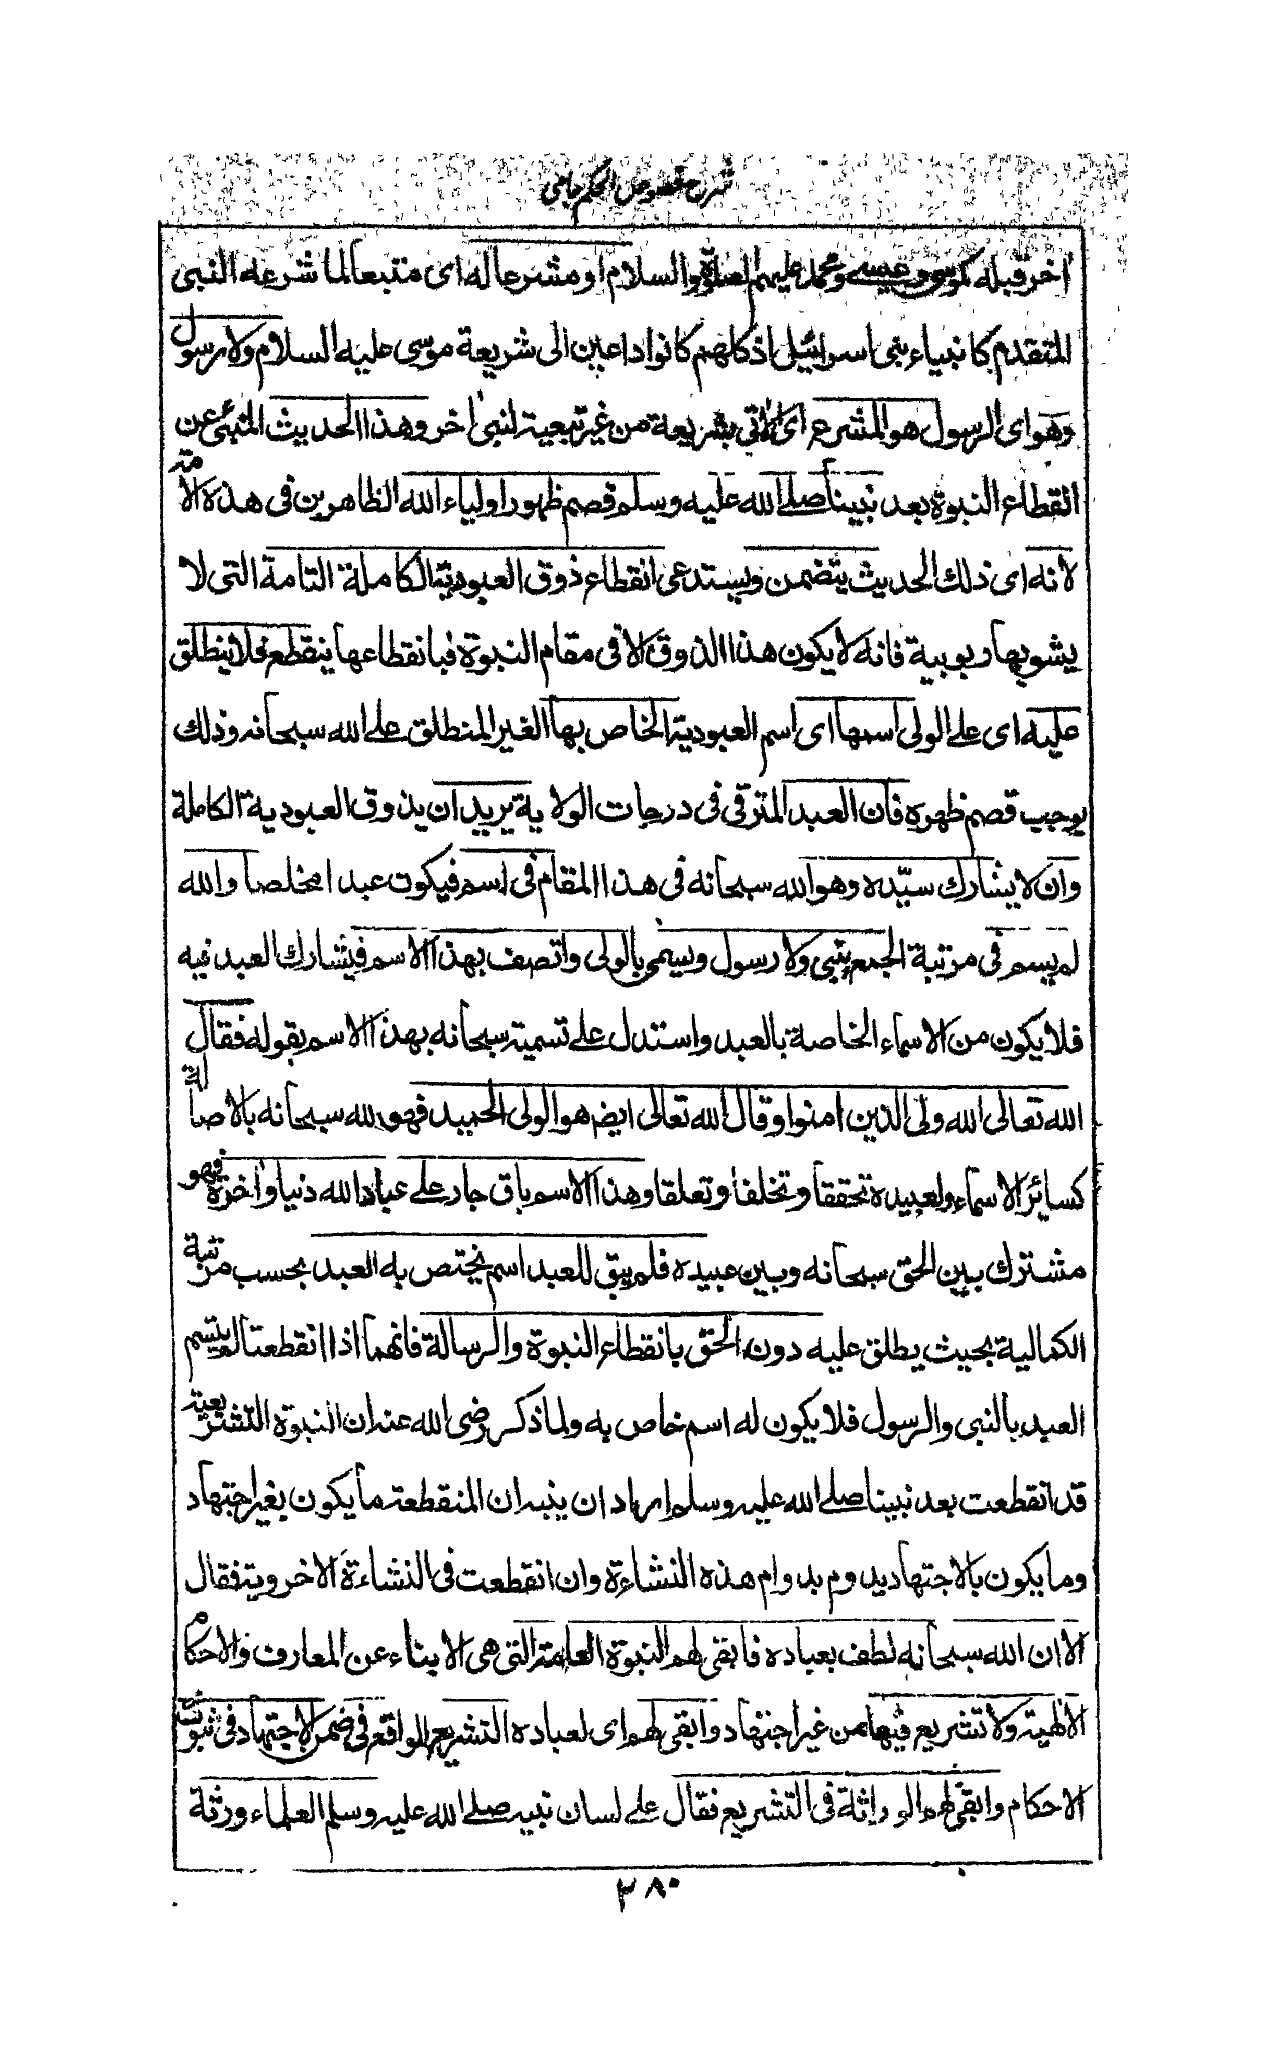 شرح فصوص الحكم جامى
اخر قبله كموسى وعيسے ومحمد عليهم الصلوة والسلام او مشرعا له اى متبعا لما شرعه النبى
المتقدم كانبياء بنى اسرائيل اذ كلهم كانوا داعين الى شريعة موسى عليه السلام ولا رسول
وهو اى الرسول هو المشرع اى الاتى بشريعة من غير تبعية لنبى اخر وهذا الحديث المنبئ عن
انقطاع النبوة بعد نبينا صلے الله عليه وسلم قصم ظهور اولياء الله الظاهرين فى هذه الامة
لانه اى ذلك الحديث يتضمن ويستدعى انقطاع ذوق العبودية الكاملة التامة التى لا
يشوبها ربوبية فانه لا يكون هذا الذوق الا فى مقام النبوة فبانقطاعها ينقطع فلا ينطلق
عليه اى علے الولى اسمها اى اسم العبودية الخاص بها الغير المنطلق علے الله سبحانه وذلك
يوجب قصم ظهره فان العبد المترقى فى درجات الولاية يريد ان يذوق العبودية الكاملة
وان لا يشارك سيّده وهو الله سبحانه فى هذا المقام فى اسم فيكون عبدا مخلصا والله
لم يسم فى مرتبة الجمع بنبى ولا رسول وسمى بالولى واتصف بهذا الاسم فيشارك العبد فيه
فلا يكون من الاسماء الخاصة بالعبد واستدل علے تسمية سبحانه بهذا الاسم بقوله فقال
الله تعالى الله ولى الذين امنوا وقال الله تعالى ايض هو الولى الحميد فهو لله سبحانه بالاصالة
كسائر الاسماء ولعبيده تحققا وتخلقا وتعلقا وهذا الاسم باق جار علے عباد الله دنيا واخرة فهو
مشترك بين الحق سبحانه وبين عبيده فلم يبق للعبد اسم يختص به العبد بحسب مرتبة
الكمالية بحيث يطلق عليه دون الحق بانقطاع النبوة والرسالة فانهما اذا انقطعتا لم يتسم
العبد بالنبى والرسول فلا يكون له اسم خاص به ولما ذكر رضى الله عنه ان النبوة التشريعية
قد انقطعت بعد نبينا صلے الله عليه وسلم اراد ان ينبه ان المنقطعة ما يكون بغير اجتهاد
وما يكون بالاجتهاد يدوم بدوام هذه النشاءة وان انقطعت فى النشاءة الاخروية فقال
الا ان الله سبحانه لطف بعباده فابقى لهم النبوة العامة التى هى الابناء عن المعارف والاحكام
الالهية ولا تشريع فيها من غير اجتهاد وابقى لهم اى لعباده التشريع الواقع فى ضمن الاجتهاد فى ثبوت
الاحكام وابقى لهم الوراثة فى التشريع فقال علے لسان نبيه صلے الله عليه وسلم العلماء ورثة
٣٨٠